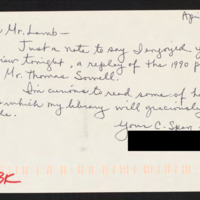 Apri
Mr. Lamb—
Just a note to say I enjoyed y
view tonight, a replay of the 1990 p
Mr. Thomas Sowell.
I'm curious to read some of h
which my library will graciously
Your C-Span
BK